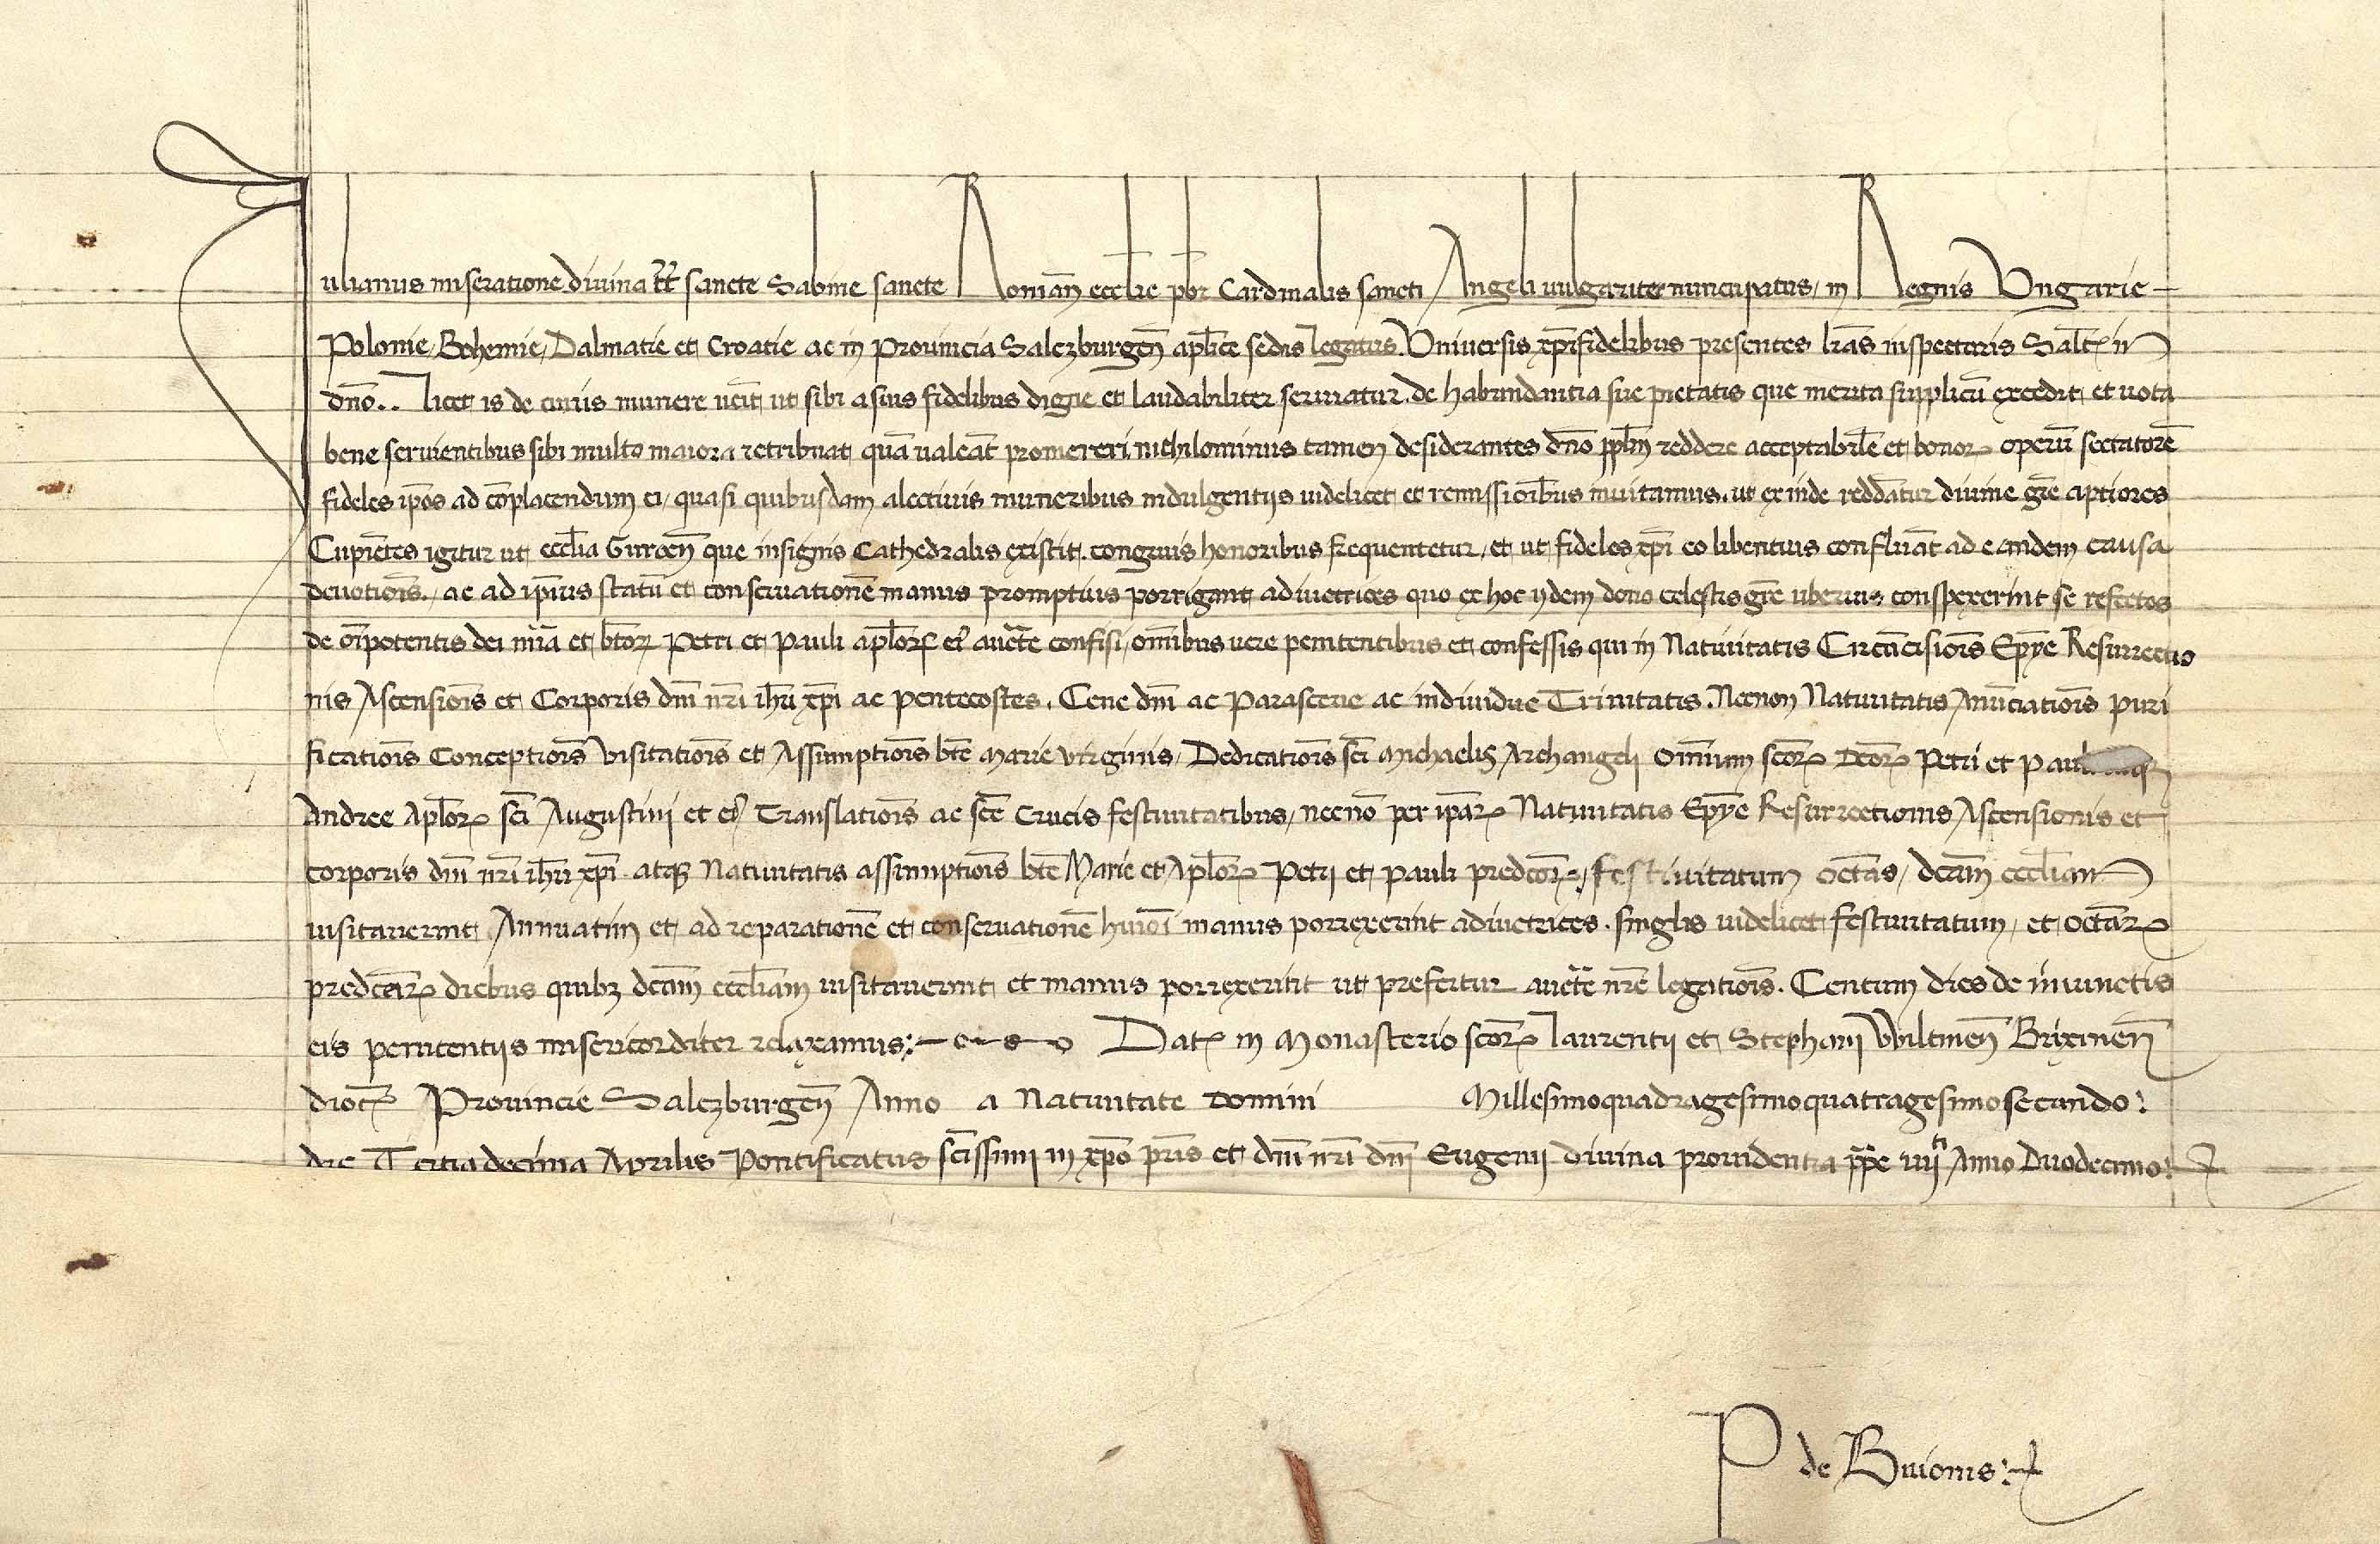 Iulianus miseratione divina tt̃ sancte Sabine sancte Romañ eccl̃ie pb̃r Cardinalis sancti Angeli vulgariter nuncupatus, in Regnis Ungarie
Polonie, Bohemie, Dalmatie et Croatie ac in Provincia Salczburgeñ apl̃ice sedis Legatus. Universis xp̃ifidelibus presentes lr̃as inspecturis Salt̃m in
dño.. Licet is de cuius munere venit ut sibi a suis fidelibus digne et laudabiliter serviatur de habundantia sue pietatis que merita supplicũ excedit et vota
bene servientibus sibi multo maiora retribuat quã valeãt promereri nichilominus tamen desiderantes dño pp̃lm̃ reddere acceptabilẽ et bonoꝝ operũ sectatorẽ
fideles ip̃os ad cõplacendum ei, quasi quibusdam alectivis muneribus indulgentiis videlicet et remissioñibus invitamus. ut exinde reddãtur divine gr̃e aptiores
Cupiẽtes igitur ut eccl̃ia Gurceñ que insignis Cathedralis existit. congruis honoribus frequentetur, et ut fideles xp̃i eo libentius confluãt ad eandem causa
devotiois̃., ac ad ip̃ius statũ et conservationẽ manus promptius porrigant adiutrices quo ex hoc ijdem dono celestis gr̃e uberius conspexerint se refectos
de om̃ipotentis dei mĩa et btõꝝ Petri et Pauli apl̃oꝝ ei⁹ auctẽ confisi, om̃ibus vere penitentibus et confessis qui in Nativitatis Circũcisiois̃ Epỹe Resurrectio
nis Ascensiois̃ et Corporis dñi nr̃i ihũ xp̃i ac Pentecostes. Cene dñi ac Parasceue ac individue Trinitatis. Necnon Nativitatis Anũciatiois̃ Puri
ficatiois̃ Conceptiois̃ Visitatiois̃ et Assumptiois̃ btẽ Marie virginis, Dedicatiois̃ sc̃i Michaelis Archangeli Om̃ium sc̃oꝝ Dc̃oꝝ Petri et Pauli
Andree Apl̃oꝝ sc̃i Augustini et ei⁹ Translatiois̃ ac sc̃e Crucis festivitatibus, necnõ per ip̃aꝝ Nativitatis Epỹe Resurrectionis Ascensionis et
corporis dñi nr̃i ihũ xp̃i atqꝫ Nativitatis assumptiois̃ btẽ Marie et Apl̃oꝝ Petri et Pauli predc̃oꝝ, festivitatum octãs, dc̃am eccl̃iam
visitaverint Annuatim et ad reparationẽ et conservationẽ huiõi manus porrexerint adiutrices. singl̃is videlicet festivitatum, et octãꝝ
predc̃aꝝ diebus quibꝫ dc̃am eccl̃iam visitaverint et manus porrexerint ut prefertur auctẽ nr̃e legatiois̃. Centum dies de iniunctis
eis penitentiis misericorditer relaxamus: Dat̃ in Monasterio sc̃oꝝ Laurentii et Stephani Wiltineñ Brixineñ
dioc̃ Provincie Salczburgeñ Anno a Nativitate Domini Millesimoquadragesimoquatragesimosecundo:
die Tertiadecima Aprilis Pontificatus sc̃issimi in xp̃o pr̃is et dñi nr̃i dñi Eugenii divina providentia pp̃e iiij^ti Anno Duodecimo:
P de Buionis: